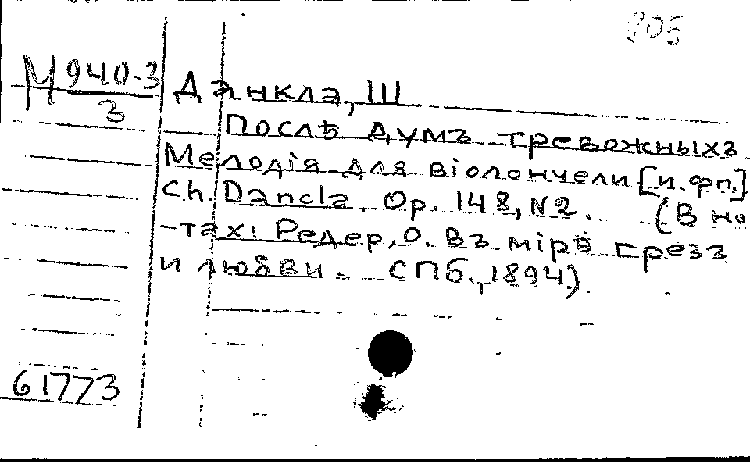 805
М 940-3
3
Данкла, Ш
Послѣ думъ тревожныхъ
Мелодія для віолончели [и фп.]
Ch. Dancla. Op. 148, N2. (В но
-тах: Редер, О. Въ мірѣ грезъ
и любви. СПб., 1894).
61773